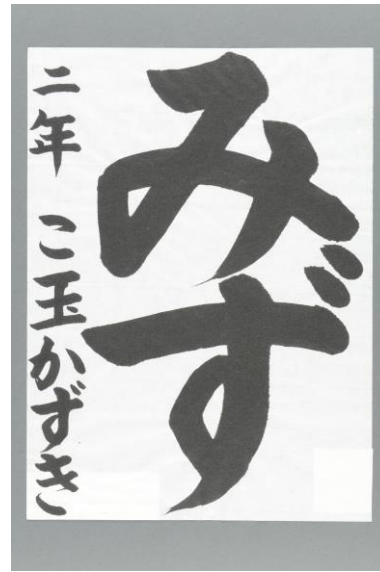 みず
二年 こ玉かずき